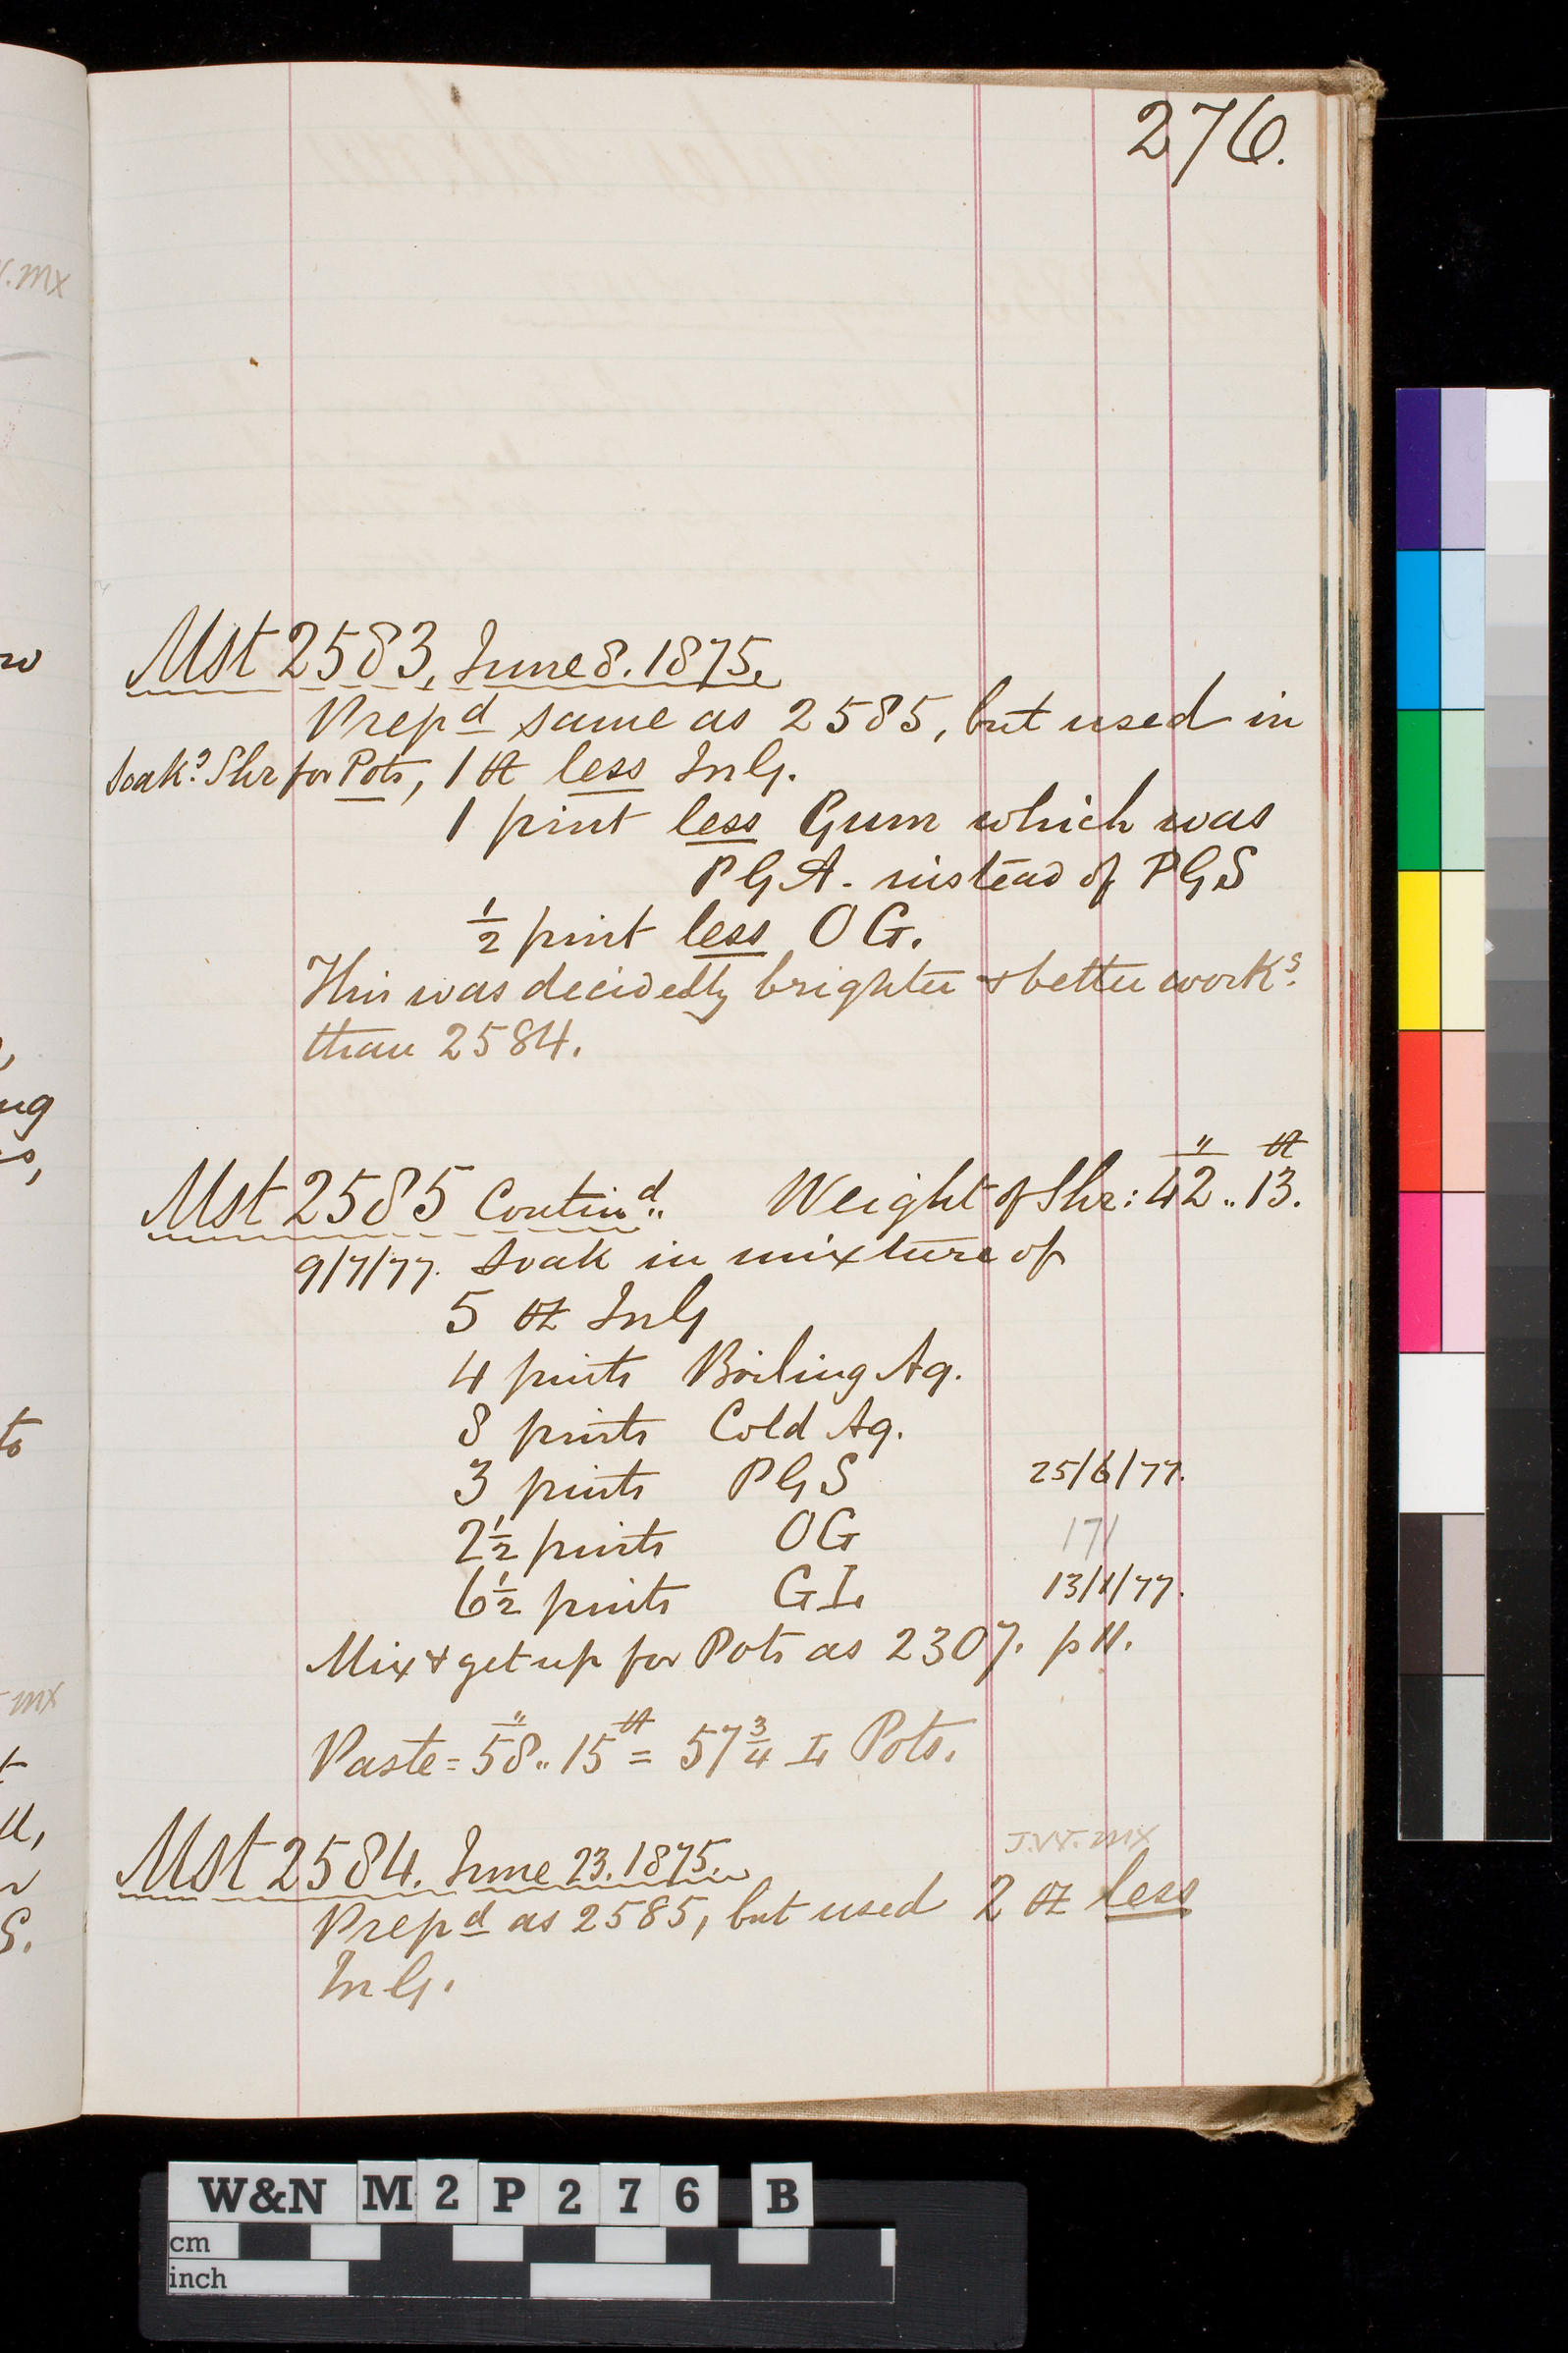 276.
Mst 2583, June 8. 1875.
Prepd same as 2585, but used in
soakg Shr for Pots, 1 lb less InG.
1 pint less Gum which was
PGA. instead of PGS
½ pint less OG.
This was decidedly brighter & better workg
than 2584.
Mst 2585 Contind.. Weight of Shr: 42 .. 13.
9/7/77. soak in mixture of
5 oz InG
4 pints Boiling Aq.
8 pints Cold Aq.
3 pints PGS 25/6/77.
2½ pints OG 171
6½ pints GL 13/1/77.
Mix & get up for Pots as 2307. p 11.
Paste = 58 .. 15 lb = 57¾ L Pots.
J.V.T. mx
Mst 2584. June 23. 1875.
Prepd as 2585, but used 2 oz less
InG.
W&N M2P276 B
cm
inch